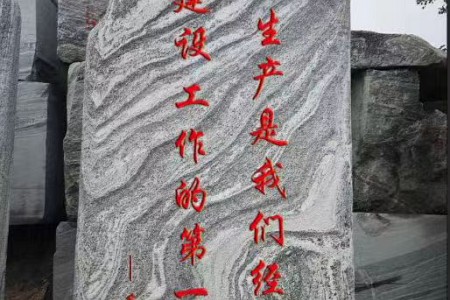 生产是我们经
建设工作的第一